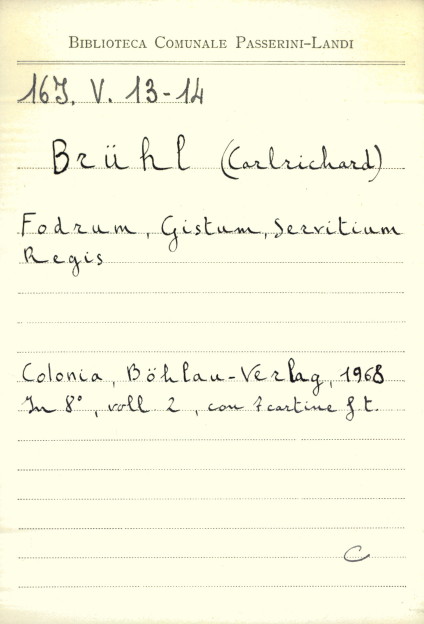 BIBLIOTECA COMUNALE PASSERINI-LANDI
16J. V. 13-14
Brühl (Carlrichard)
Fodrum, Gistum, Servitium
Regis
Colonia, Böhlau-Verlag, 1968
In 8°, voll. 2, con 7 cartine f.t.
C